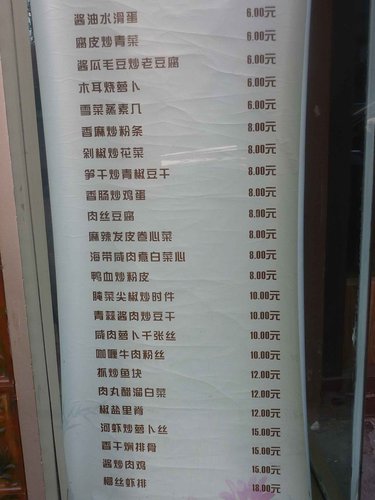 酱油水滑蛋 6.00元
腐皮炒青菜 6.00元
酱瓜毛豆炒老豆腐 6.00元
木耳烧萝卜 6.00元
雪菜蒸素几 6.00元
香麻炒粉条 8.00元
剁椒炒花菜 8.00元
笋干炒青椒豆干 8.00元
香肠炒鸡蛋 8.00元
肉丝豆腐 8.00元
麻辣发皮卷心菜 8.00元
海带咸肉煮白菜心 8.00元
鸭血炒粉皮 8.00元
腌菜尖椒炒时件 10.00元
青蒜酱肉炒豆干 10.00元
咸肉萝卜千张丝 10.00元
咖喱牛肉粉丝 10.00元
抓炒鱼块 12.00元
肉丸醋溜白菜 12.00元
椒盐里脊 12.00元
河虾炒萝卜丝 15.00元
香干焖排骨 15.00元
酱炒肉鸡 15.00元
椰丝虾排 18.00元